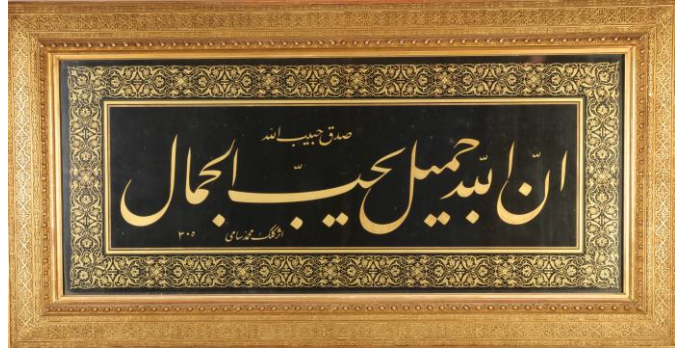 صدق حبيب الله
ان الله جميل يحب الجمال
اثر كلك محمد سامی ۳۰۵